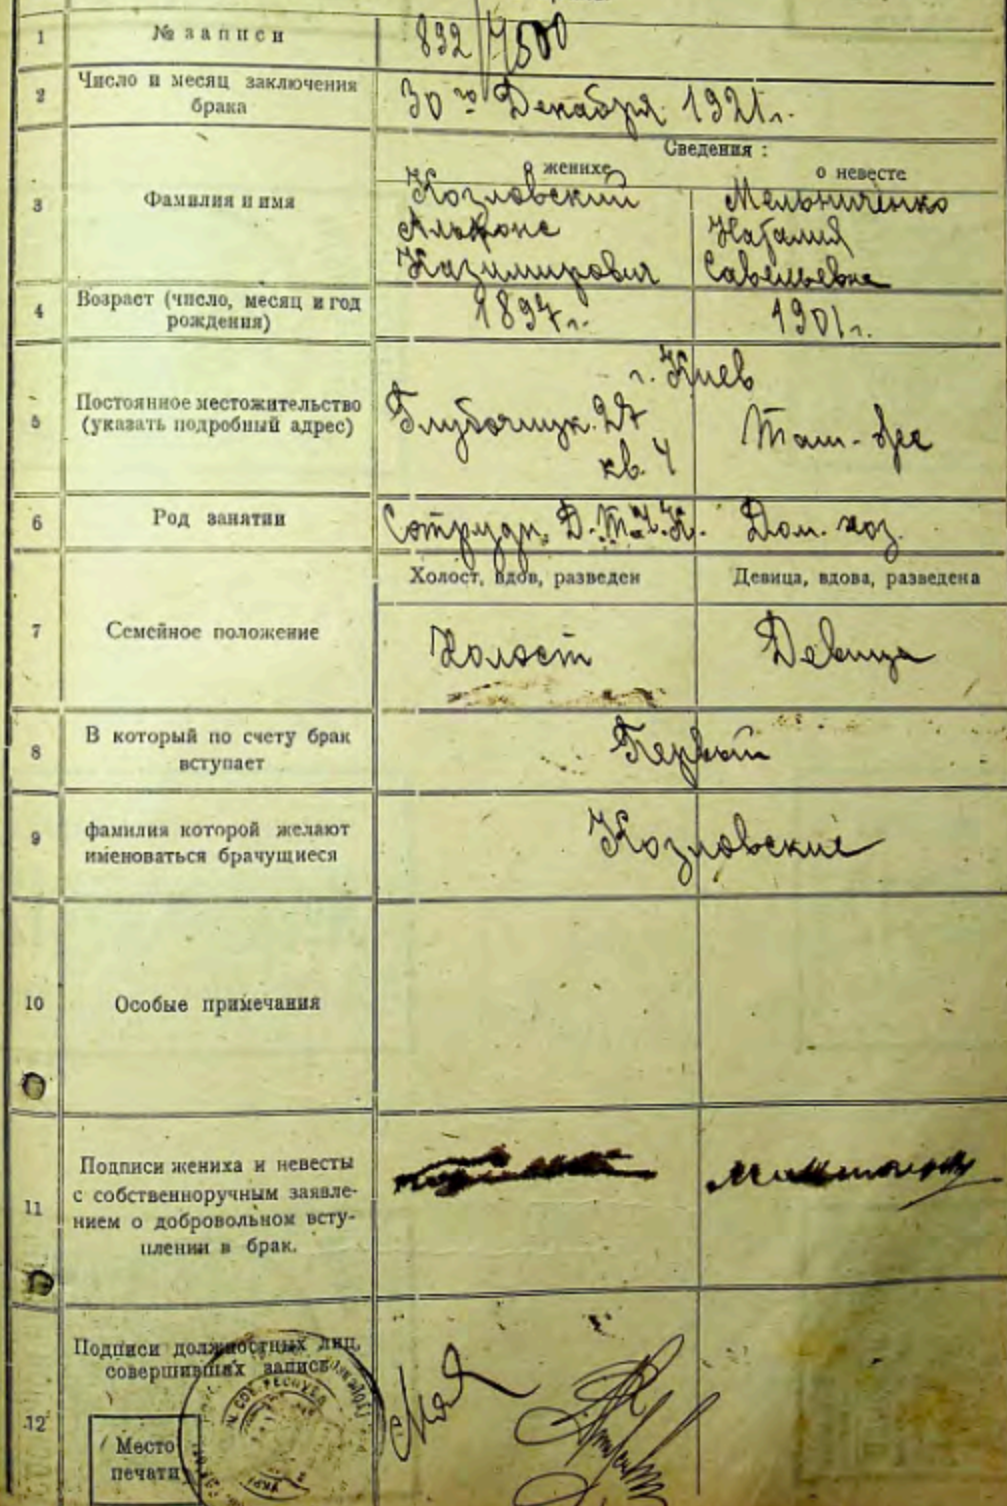 1 № записи 832/4500
2 Число и месяц заключения
брака
30го Декабря 1921г.
Сведения :
о женихе о невесте
3 Фамилия и имя
Козловский Мельниченко
Альфонс Наталия
Казимирович Савельевна
4 Возраст (число, месяц и год
рождения)
1897г. 1901г.
г. Киев
5 Постоянное местожительство
(указать подробный адрес)
Глубочицк. 27
кв. 4
6 Род занятии Сотрудн. Дом. хоз.
Холост, вдов, разведен Девица, вдова, разведена
7 Семейное положение Холост Девица
8 В который по счету брак
вступает
Первый
9 фамилия которой желают
именоваться брачущиеся
Козловские
10 Особые примечания
11 Подписи жениха и невесты
с собственноручным заявле-
нием о добровольном всту-
плении в брак.
12 Подписи должностных лиц,
совершивших запись
Место
печати